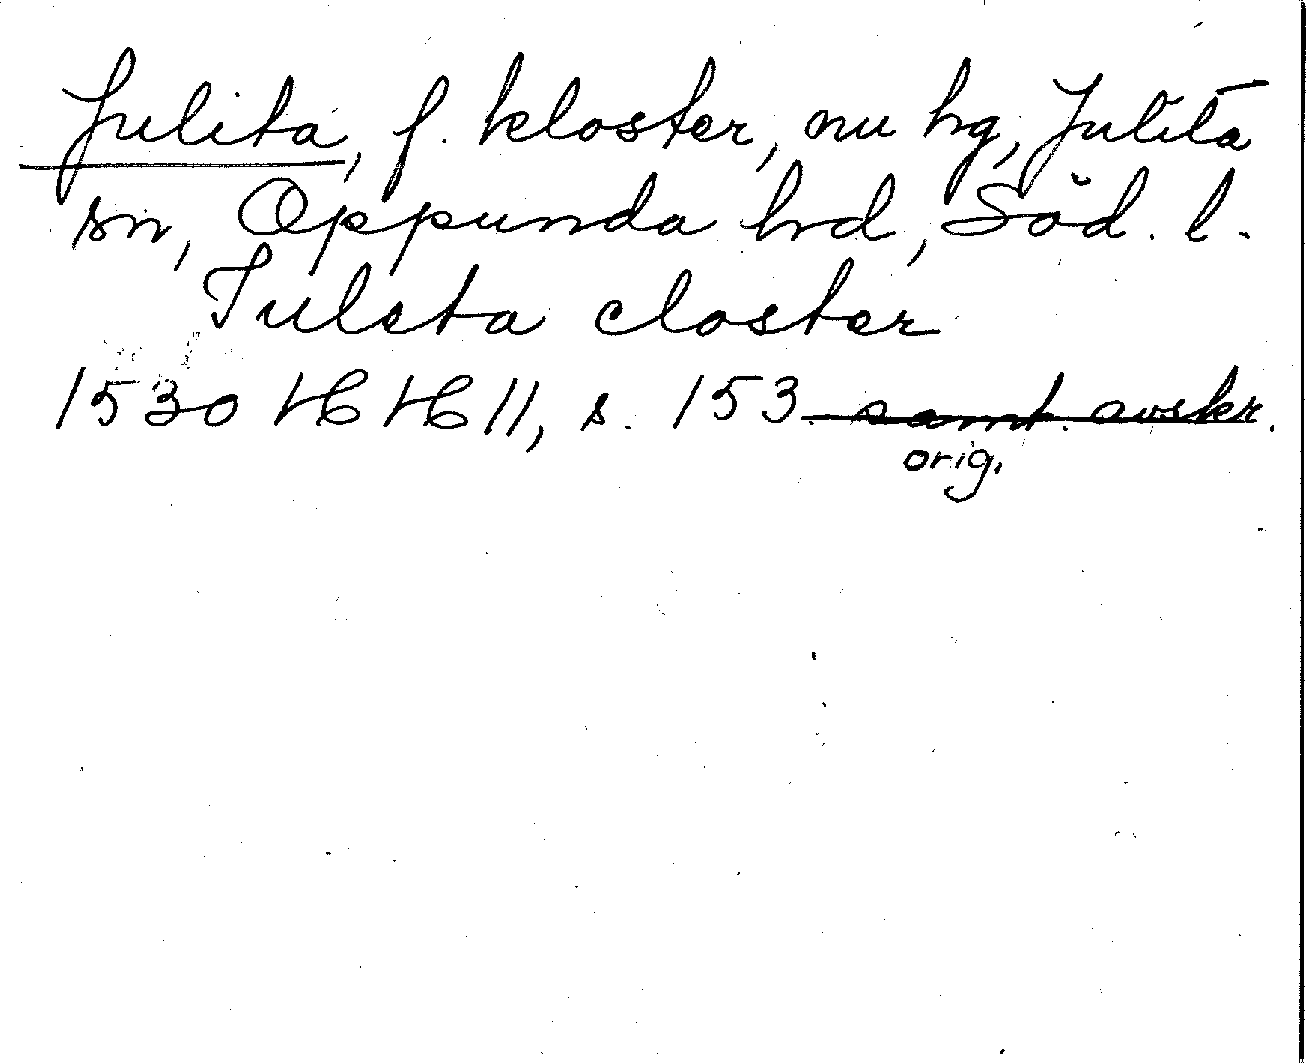 Julita, f. kloster, nu hg, Julita
sn, Oppunda hd, Söd. l.
Juleta closter
1530 HH 11, s. 153 samt. avskr.
orig.